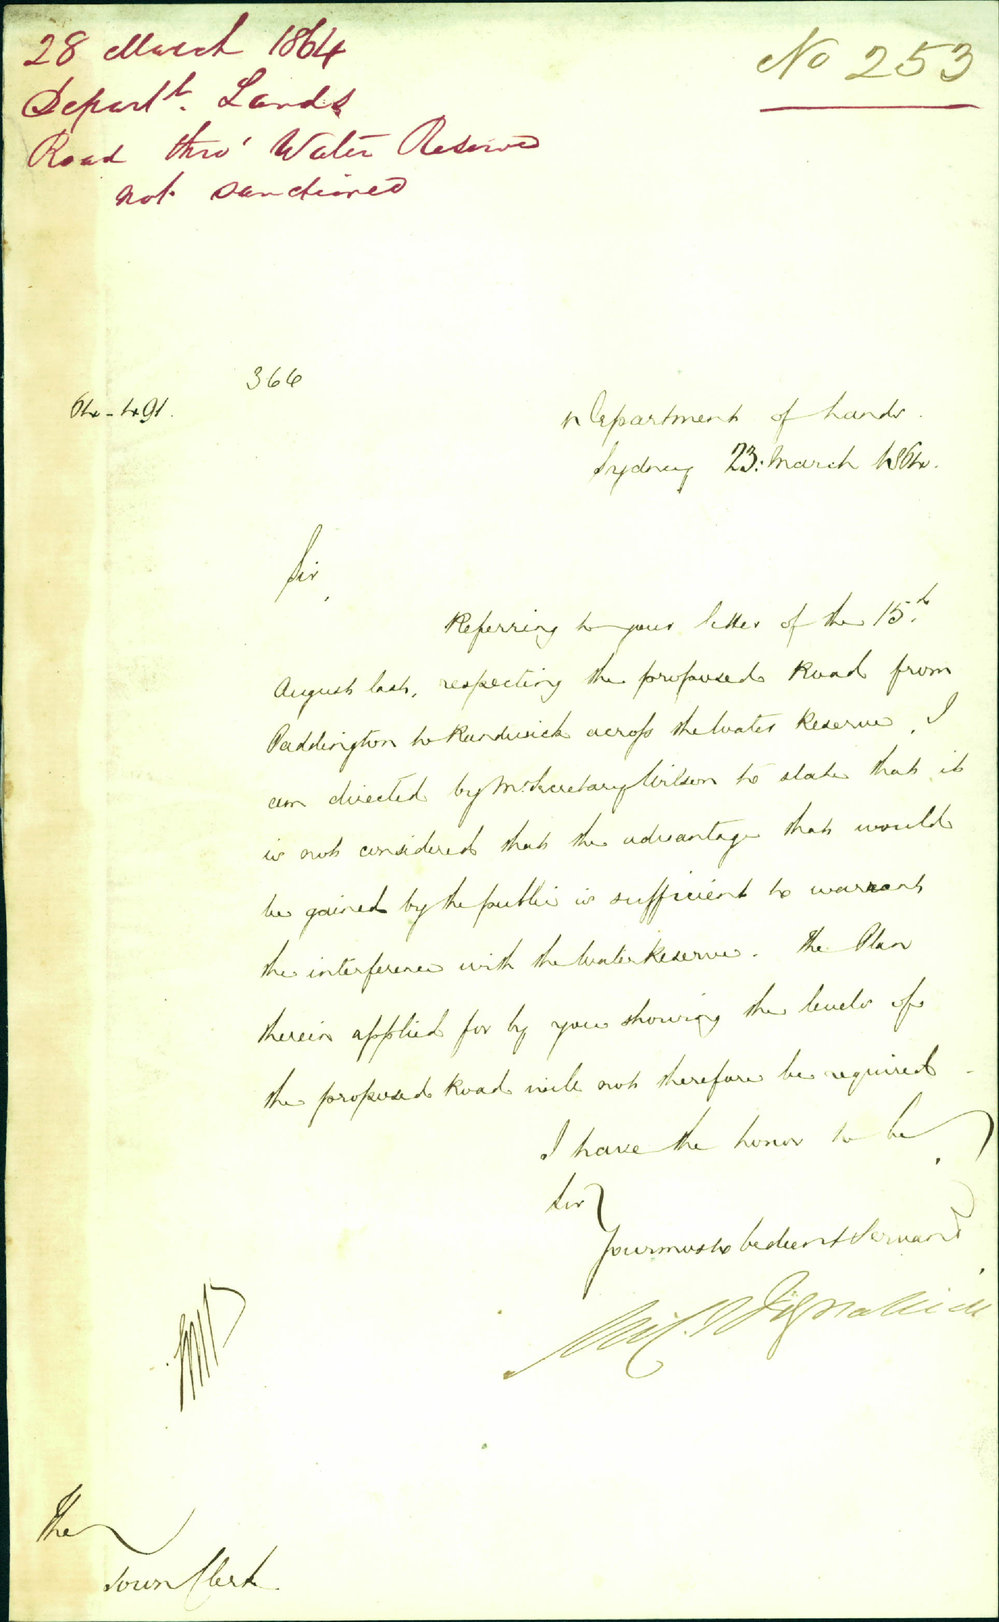 28 March 1864
Departt. Lands
Road thro' Water Reserve
not sanctioned
No 253
366
64-491.
Department of Lands.
Sydney 23: March 1864.
Sir,
Referring to your letter of the 15th.
August last, respecting the proposed Road from
Paddington to Randwick across the Water Reserve, I
am directed by Mr. Secretary Wilson to state that it
is not considered that the advantage that would
be gained by the public is sufficient to warrant
the interference with the Water Reserve. The Plan
therein applied for by you showing the levels of
the proposed Road will not therefore be required.
I have the honor to be
Sir
Your most obedient Servant
Mich. Fitzpatrick
The
Town Clerk.